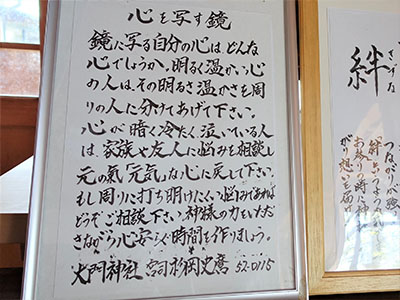 心を写す鏡
鏡に写る自分の心はどんな
心でしょうか、明るく温かい心
の人は、その明るさ温かさを周
りの人に分けてあげて下さい。
心が暗く冷たく泣いている人
は、家族や友人に悩みを相談し
元の気「元気」な心に戻して下さい。
もし周りに打ち明けにくい悩みあれば
どうぞご相談下さい神様の力をいただ
きながら心安らぐ時間を作りましょう。
大門神社 宮司 杉岡史鷹 52-0115
きずな
絆
つながりが強
お参りの時に神
がり想いを届け